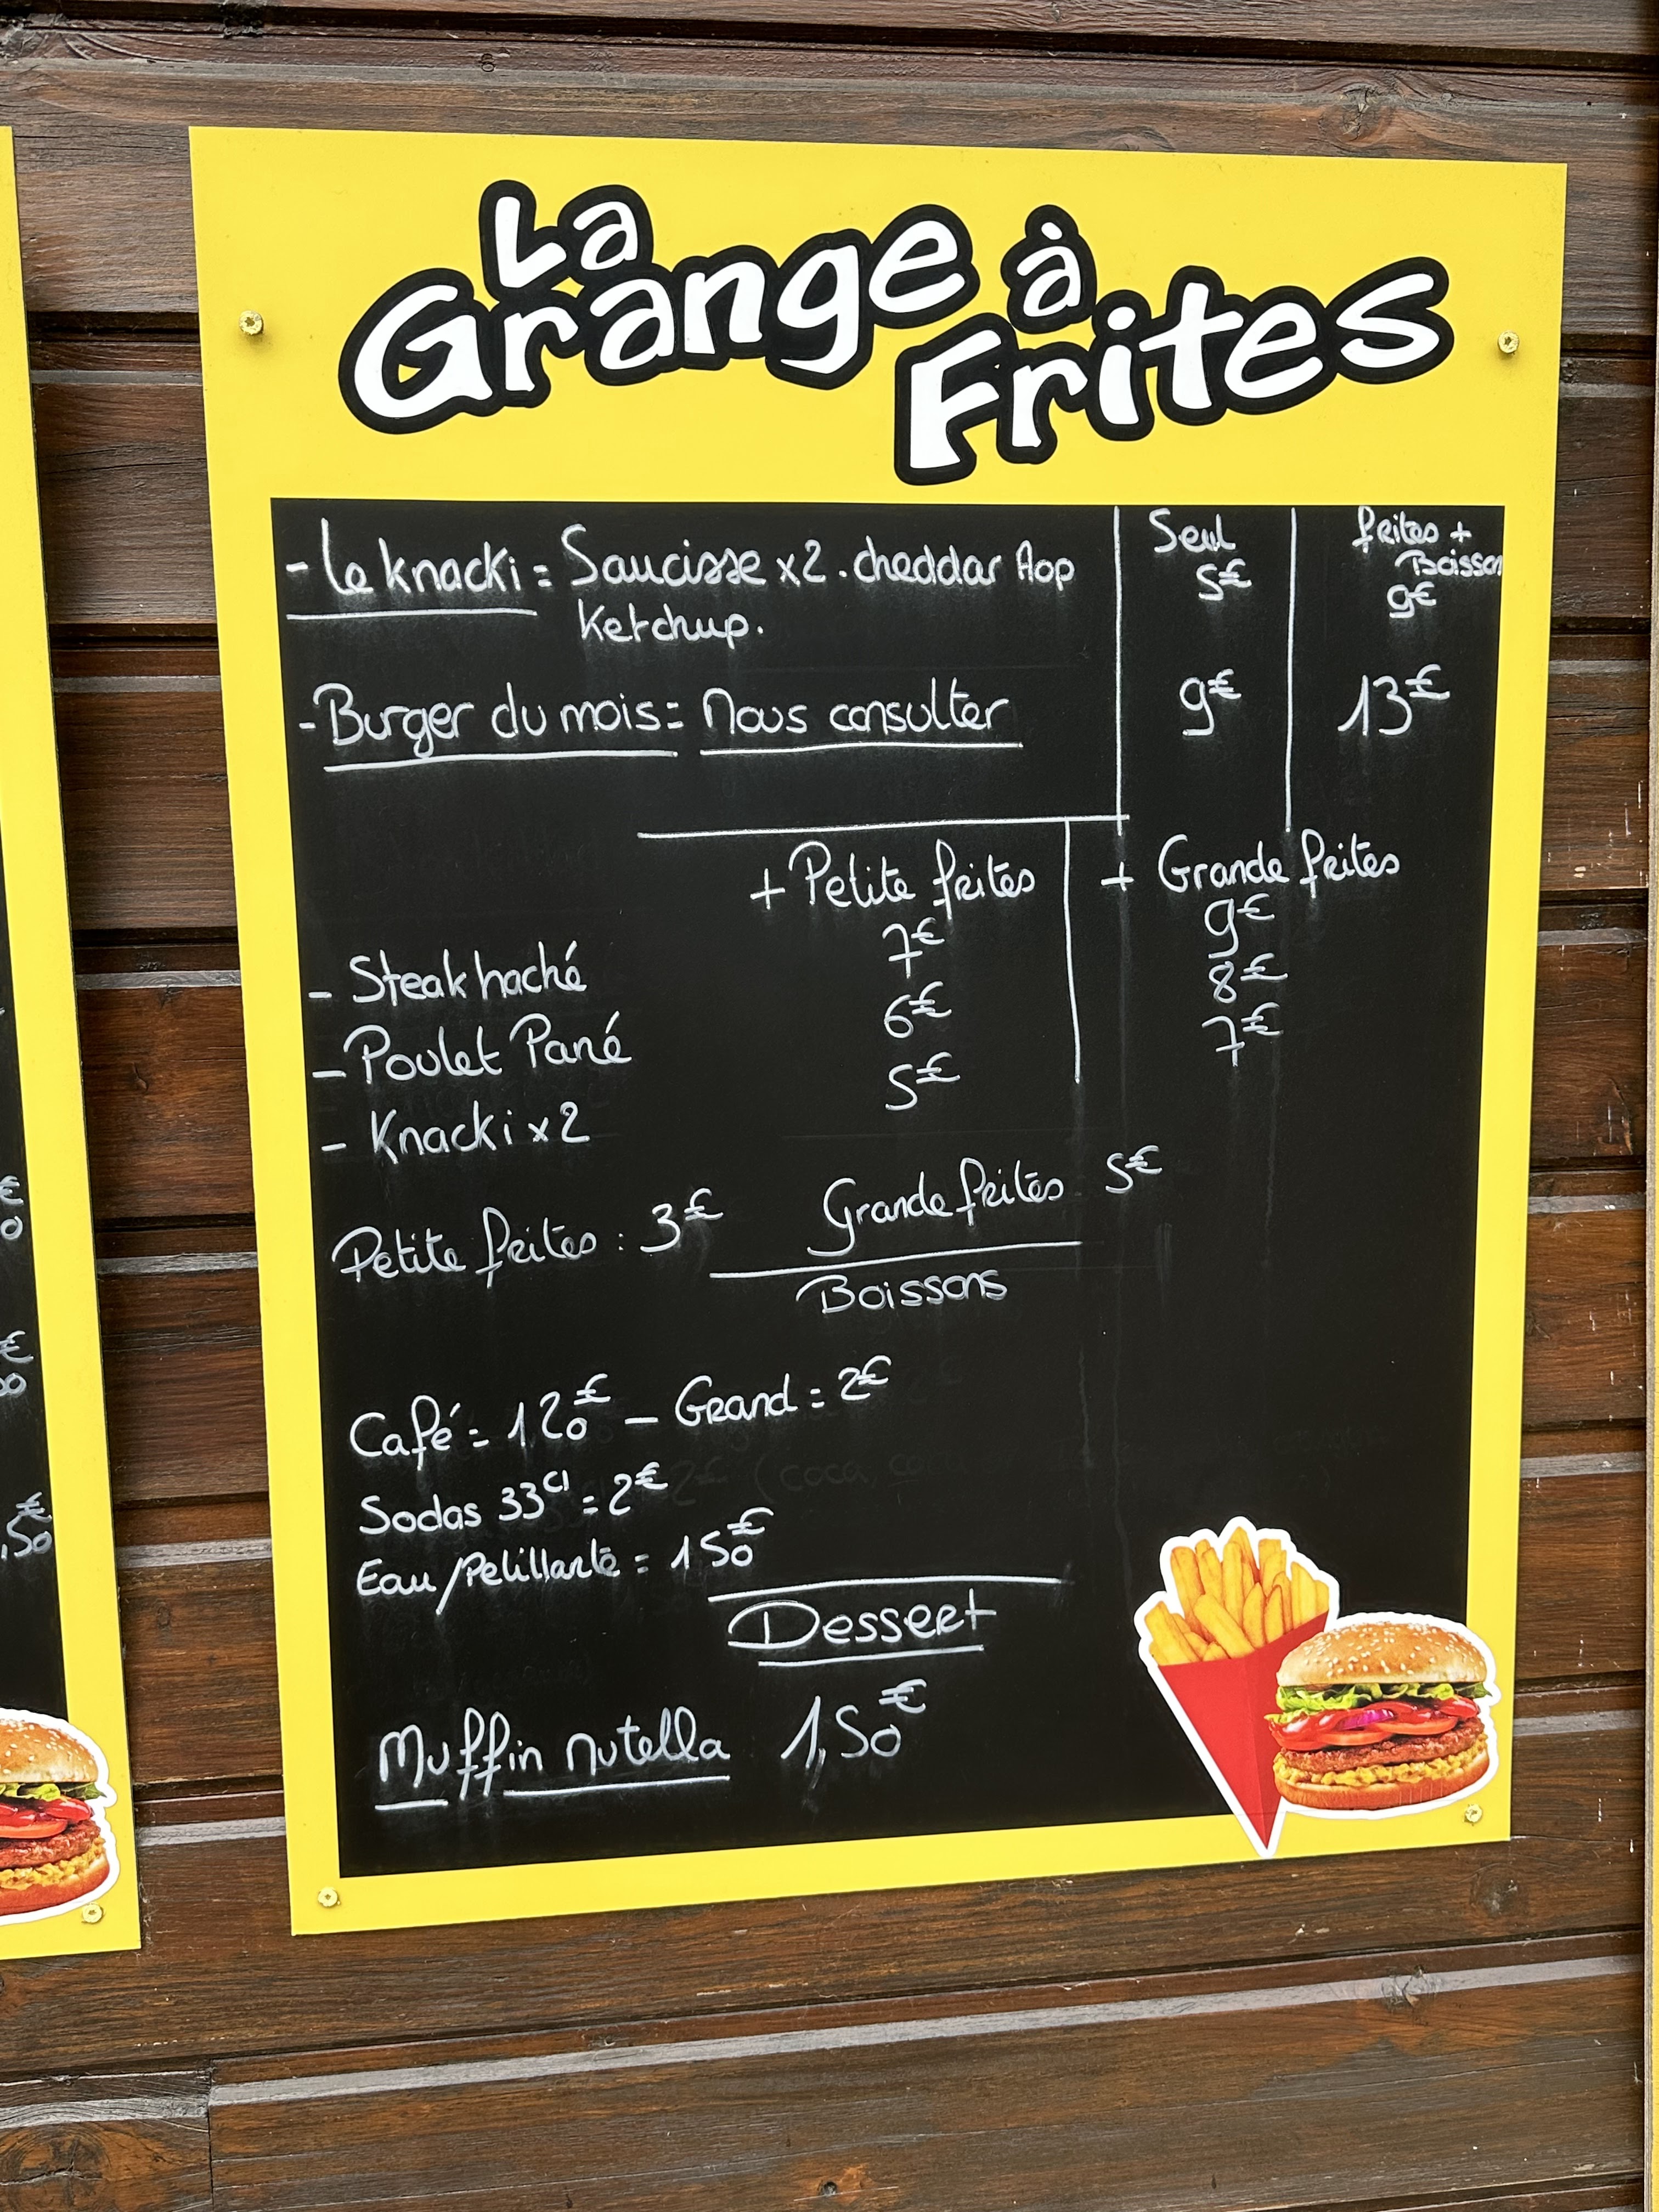 La
Grange à
Frites
- Le knacki = Saucisse x2 . cheddar Aop
Ketchup.
Seul
5€
frites +
Boisson
9€
- Burger du mois = Nous consulter 9€ 13€
+ Petite frites + Grande frites
- Steak haché 7€ 9€
- Poulet Pané 6€ 8€
- Knacki x2 5€ 7€
Petite frites : 3€ Grande frites 5€
Boissons
Café = 1,20€ - Grand = 2€
Sodas 33cl = 2€
Eau/Petillante = 1 50€
Dessert
Muffin nutella 1,50€
€
0
€
50
€
,50